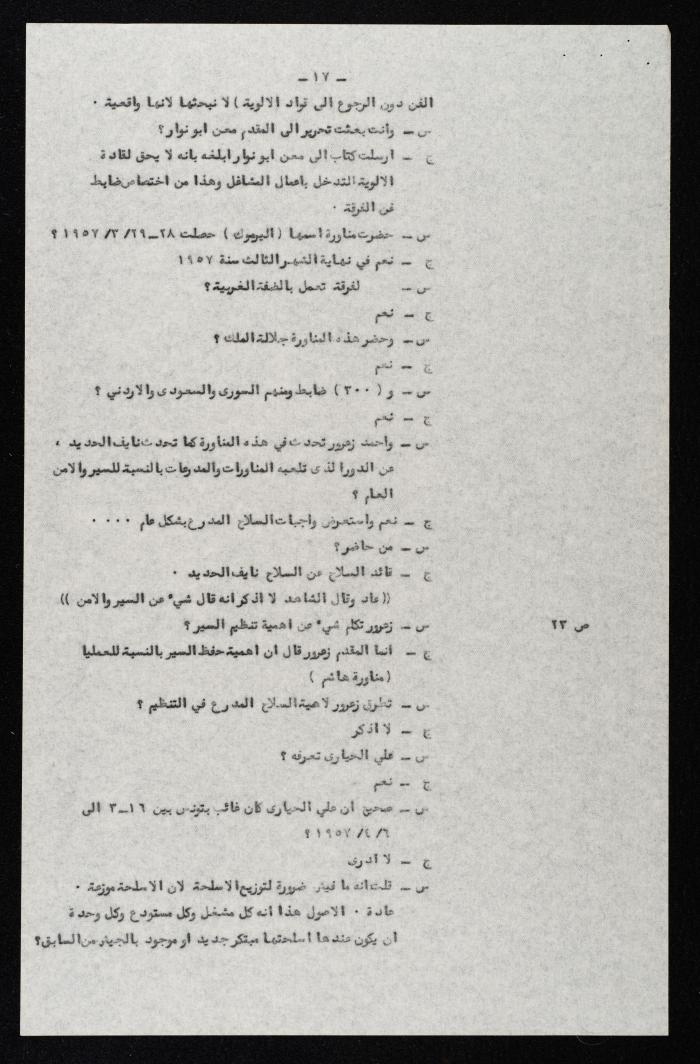 – ١٧ –
الفن دون الرجوع الى قواد الالوية ) لا نبحثها لانها واقعية ٠
س – وانت بعثت تحرير الى المقدم معن ابو نوار ؟
ج – ارسلت كتاب الى معن ابو نوار ابلغه بانه لا يحق لقادة
الالوية التدخل باعمال المشاغل وهذا من اختصاص ضابط
فن الفرقة ٠
س – حضرت مناورة اسمها ( اليرموك ) حصلت ٢٨–٢٩/ ٣/ ١٩٥٧ ؟
ج – نعم في نهاية الشهر الثالث سنة ١٩٥٧
س – لفرقة تعمل بالضفة الغربية ؟
ج – نعم
س – وحضر هذه المناورة جلالة الملك ؟
ج – نعم
س – و ( ٣٠٠ ) ضابط ومنهم السورى والسعودى والاردني ؟
ج – نعم
س – واحمد زعرور تحدث في هذه المناورة كما تحدث نايف الحديد ،
عن الدور الذى تلعبه المناورات والمدرعات بالنسبة للسير والامن
العام ؟
ج – نعم واستعرض واجبات السلاح المدرع بشكل عام ٠٠٠٠
س – من حاضر ؟
ج – قائد السلاح عن السلاح نايف الحديد ٠
(( عاد وقال الشاهد لا اذكر انه قال شيء عن السير والامن ))
س – زعرور تكلم شيء عن اهمية تنظيم السير ؟
ص ٢٣
ج – انما المقدم زعرور قال ان اهمية حفظ السير بالنسبة للعمليا
( مناورة هاشم )
س – تطرق زعرور لاهمية السلاح المدرع في التنظيم ؟
ج – لا اذكر
س – علي الحيارى تعرفه ؟
ج – نعم
س – صحيح ان علي الحيارى كان غائب بتونس بين ١٦–٣ الى
٦/ ٤/ ١٩٥٧ ؟
ج – لا ادرى
س – قلت انه ما فيش ضرورة لتوزيع الاسلحة لان الاسلحة موزعة ٠
عادة ٠ الاصول هذا انه كل مشغل وكل مستودع وكل وحدة
ان يكون عندها اسلحتها مبتكر جديد او موجود بالجيش من السابق ؟